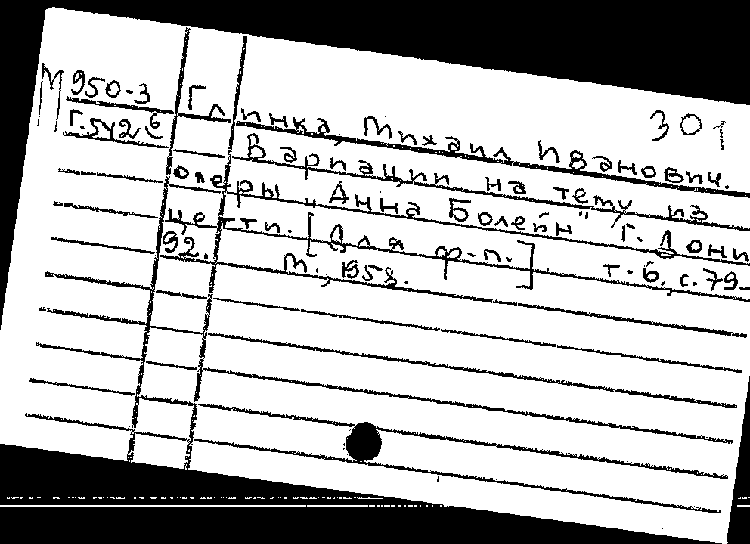 М 950-3 Глинка, Михаил Иванович. 301
Г.542б
Вариации на тему из
оперы „Анна Болейн" Г. Дони
цетти. [Для ф-п.] т. 6, с. 79
92. М., 1958.